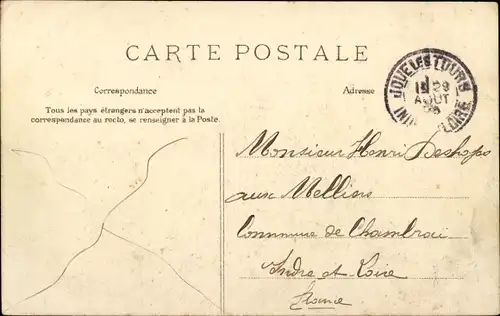 CARTE POSTALE
Correspondance
Adresse
Tous les pays étrangers n'acceptent pas la
correspondance au recto, se renseigner à la Poste.
JOUE LES TOURS
29
AOUT
LOIRE
Monsieur Henri
aux
Commune de
Indre et Loire
France